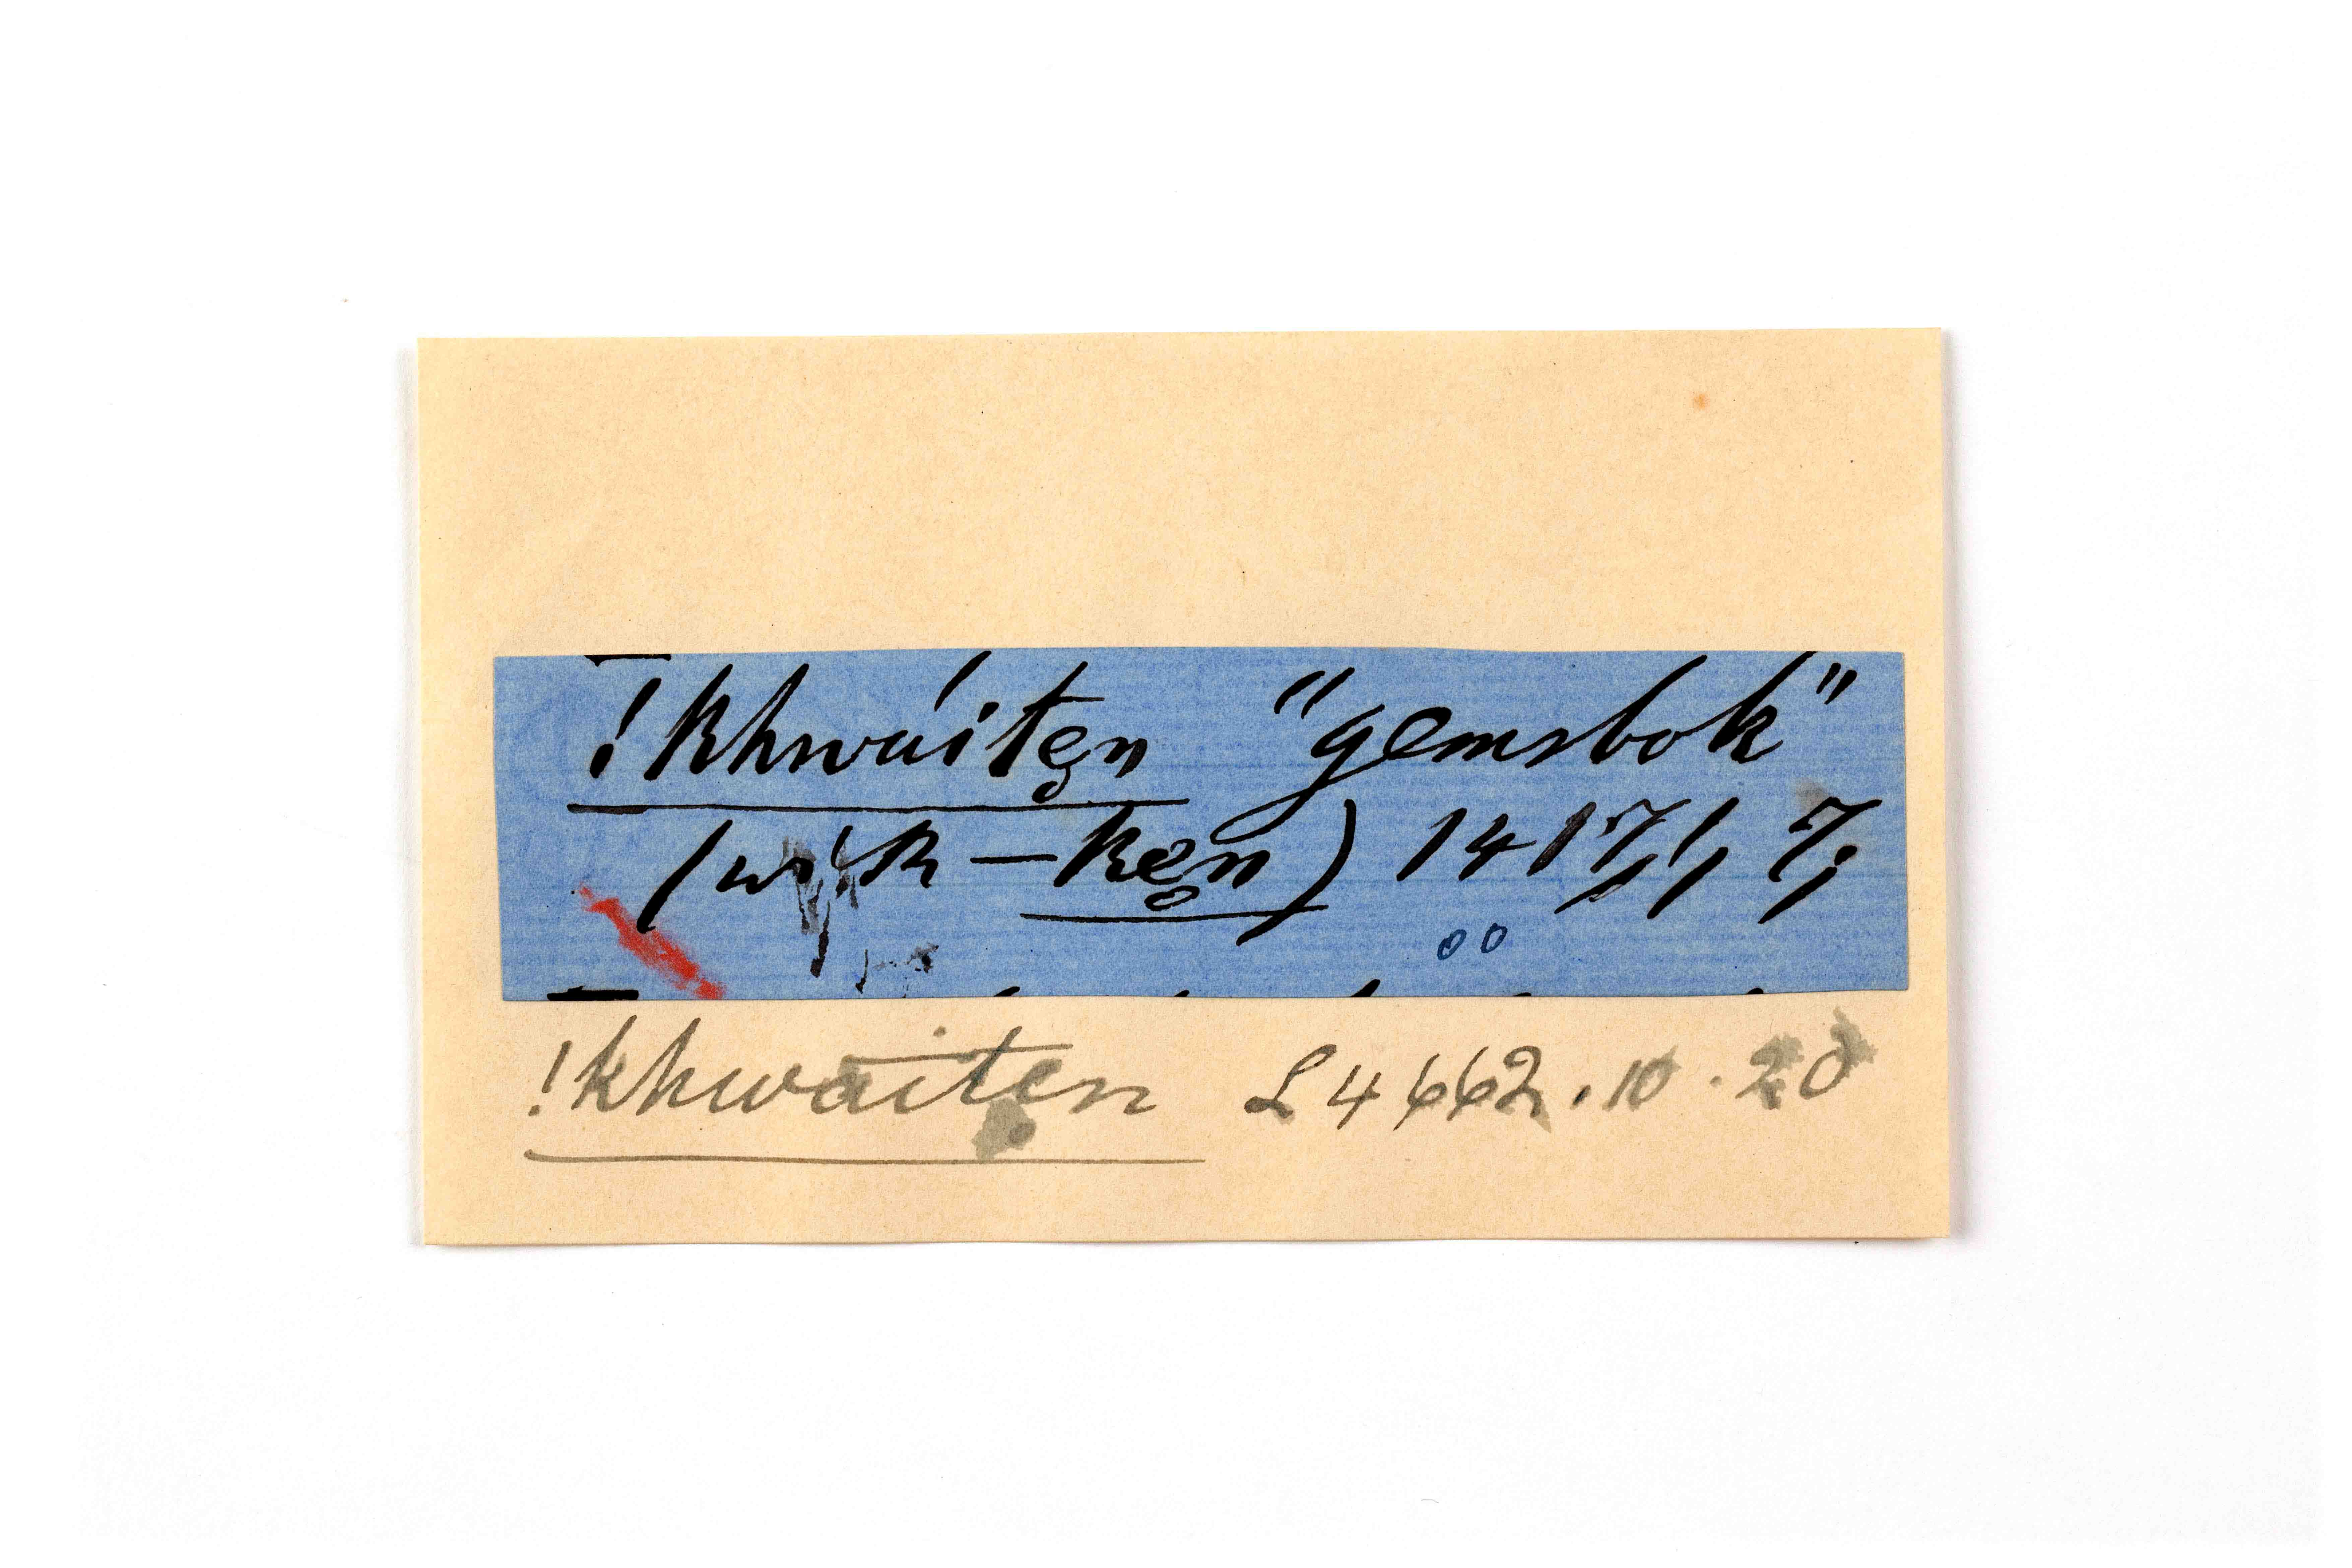 !khwáitẹn "gemsbok"
–kẹn) 1417,1,7;
oo
!khwaiten L4662.10.20